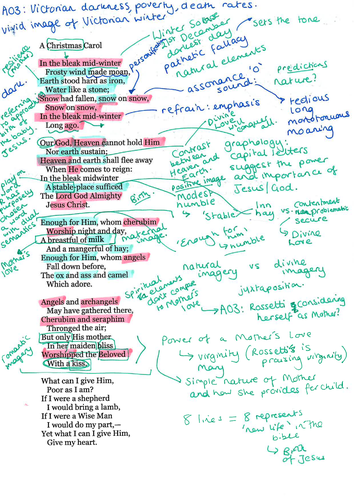 A03: Victorian darkness, poverty, death rates.
vivid image of Victorian winter
Winter Solstice
21st December
darkest day
sets the tone
pathetic fallacy
natural elements
predictions
nature?
assonance 'o'
sound:
tedious
long
monotonous
moaning
refrain: emphasis
A Christmas Carol
In the bleak mid-winter
Frosty wind made moan,
Earth stood hard as iron,
Water like a stone;
Snow had fallen, snow on snow,
Snow on snow,
In the bleak mid-winter
Long ago.
Our God, Heaven cannot hold Him
Nor earth sustain;
Heaven and earth shall flee away
When He comes to reign:
In the bleak midwinter
A stable-place sufficed
The Lord God Almighty
Jesus Christ.
Enough for Him, whom cherubim
Worship night and day,
A breastful of milk
And a mangerful of hay;
Enough for Him, whom angels
Fall down before,
The ox and ass and camel
Which adore.
Angels and archangels
May have gathered there,
Cherubim and seraphim
Thronged the air;
But only His mother
In her maiden bliss
Worshipped the Beloved
With a kiss.
What can I give Him,
Poor as I am?
If I were a shepherd
I would bring a lamb,
If I were a Wise Man
I would do my part,—
Yet what I can I give Him,
Give my heart.
dark.
the baby
Jesus
Mother's
love
contrast
between
Heaven and
earth.
positive image
graphology:
capital letters
suggest the power
and importance of
Jesus/God.
Modest
humble
'Stable'
Inn
hay
vs
secure
Divine
Love
Birth
maternal
image
'Enough for Him'
humble
natural
imagery
vs
divine
imagery
juxtaposition.
Spiritual
elements
don't compare
to Mother's
love
A03: Rossetti considering
herself as Mother?
Power of a Mother's Love
virginity (Rossetti is
praising virginity)
Mary
Simple nature of Mother
and how she provides for child.
8 lines = 8 represents
'new life' in the
bible
Birth
of Jesus
romantic
imagery